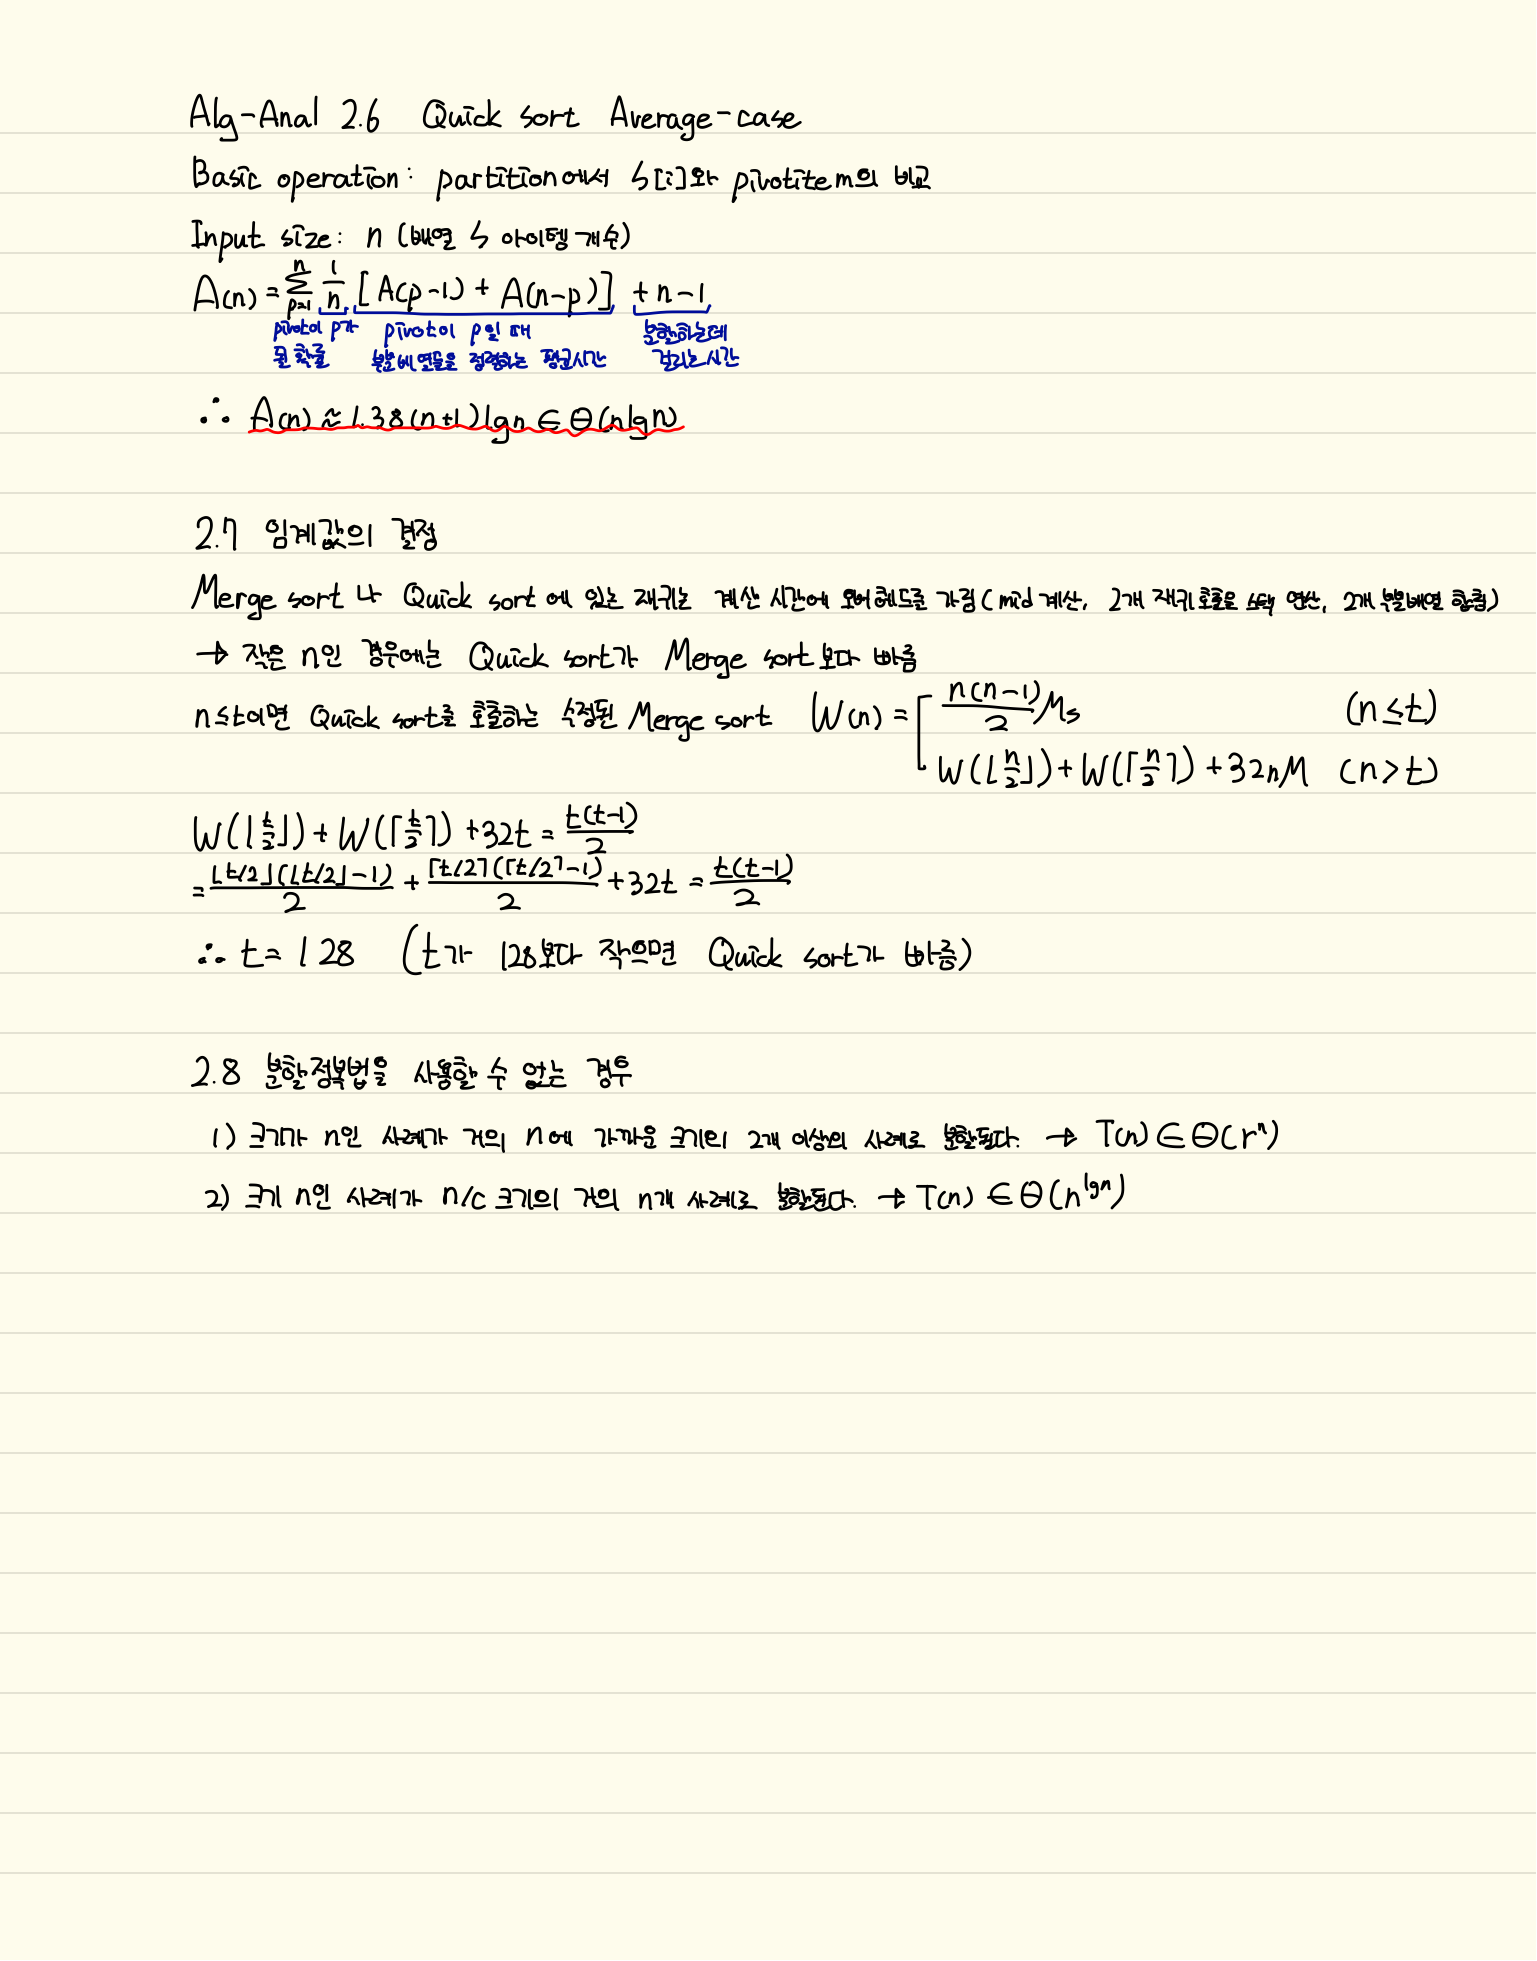 Alg-Anal 2.6 Quick sort Average-case
Basic operation: partition에서 S[i]와 pivotitem의 비교
Input size: n (배열 S 아이템 개수)
A(n) = Σ_{p=1}^{n} 1/n [A(p-1) + A(n-p)] + n-1
pivot이 p가 될 확률
pivot이 p일 때 부분배열들을 정렬하는 평균시간
분할하는데 걸리는 시간
∴ A(n) ≈ 1.38(n+1)lgn ∈ Θ(nlgn)
2.7 임계값의 결정
Merge sort 나 Quick sort 에 있는 재귀는 계산 시간에 오버헤드를 가짐 (mid 계산, 2개 재귀 호출을 스택 연산, 2개 부분배열 합침)
→ 작은 n인 경우에는 Quick sort가 Merge sort보다 빠름
n≤t이면 Quick sort를 호출하는 수정된 Merge sort W(n) = [ n(n-1)/2 Ms (n≤t)
W(⌊n/2⌋) + W(⌈n/2⌉) + 32nM (n>t)
W(⌊t/2⌋) + W(⌈t/2⌉) + 32t = t(t-1)/2
= ⌊t/2⌋(⌊t/2⌋-1)/2 + ⌈t/2⌉(⌈t/2⌉-1)/2 + 32t = t(t-1)/2
∴ t = 128 (t가 128보다 작으면 Quick sort가 빠름)
2.8 분할정복법을 사용할 수 없는 경우
1) 크기가 n인 사례가 거의 n에 가까운 크기의 2개 이상의 사례로 분할된다. → T(n) ∈ Θ(r^n)
2) 크기 n인 사례가 n/c 크기의 거의 n개 사례로 분할된다. → T(n) ∈ Θ(n^{lgn})